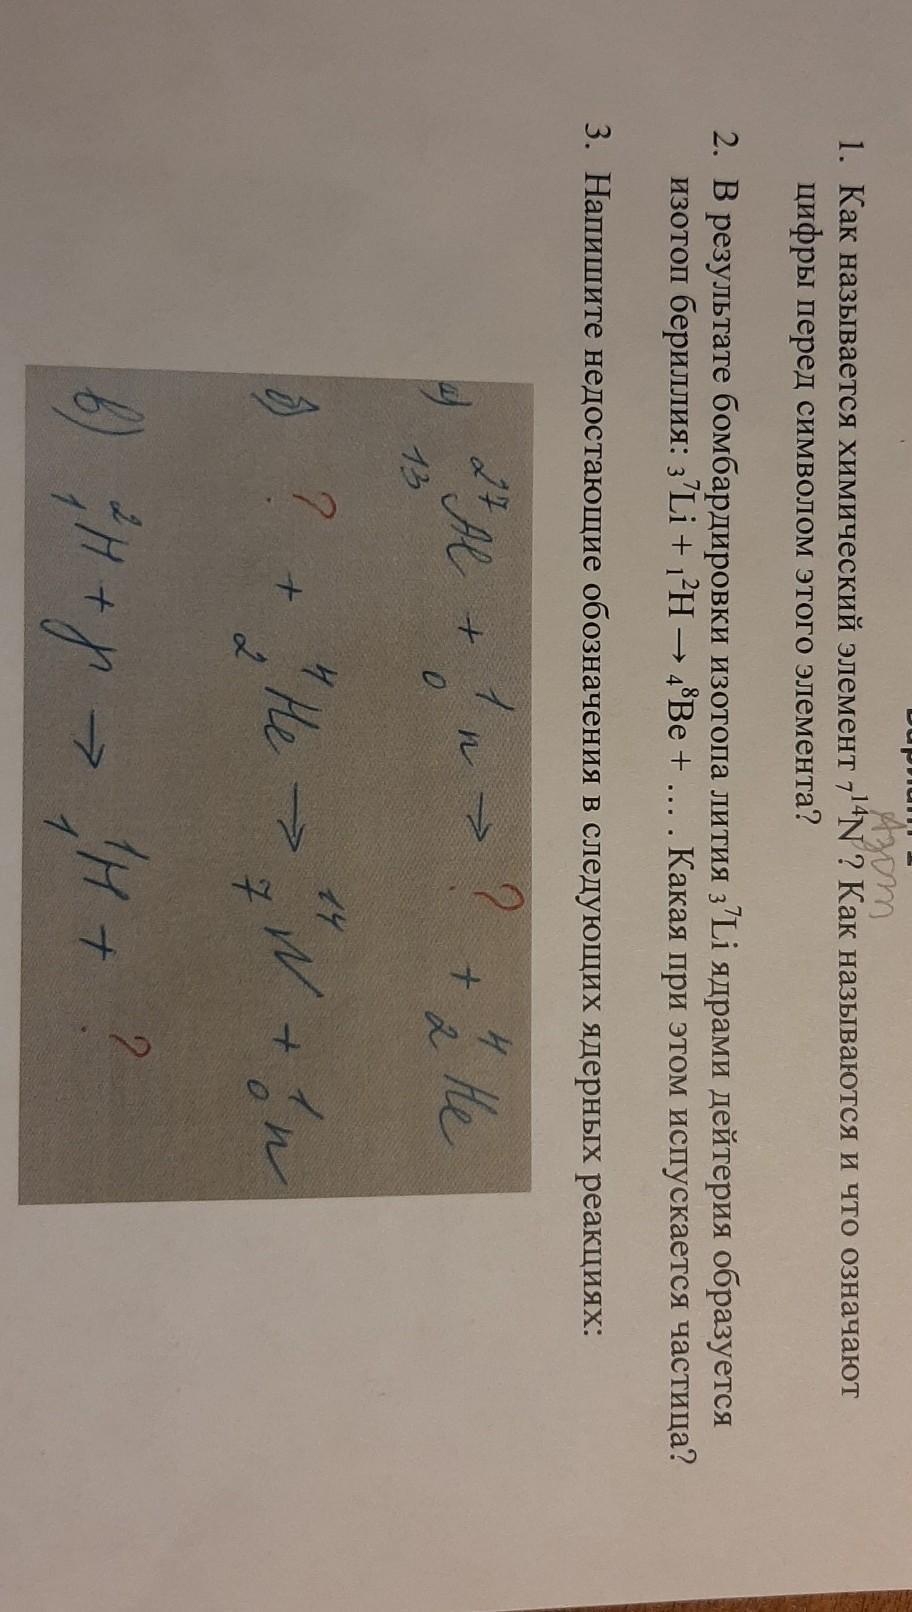 Азот
1. Как называется химический элемент ₇¹⁴N ? Как называются и что означают
цифры перед символом этого элемента?
2. В результате бомбардировки изотопа лития ₃⁷Li ядрами дейтерия образуется
изотоп бериллия: ₃⁷Li + ₁²H → ₄⁸Be + … . Какая при этом испускается частица?
3. Напишите недостающие обозначения в следующих ядерных реакциях:
а) ²⁷₁₃Al + ¹₀n → ? + ⁴₂He
б) ? + ⁴₂He → ¹⁴₇N + ¹₀n
в) ²₁H + γ → ¹₁H + ?